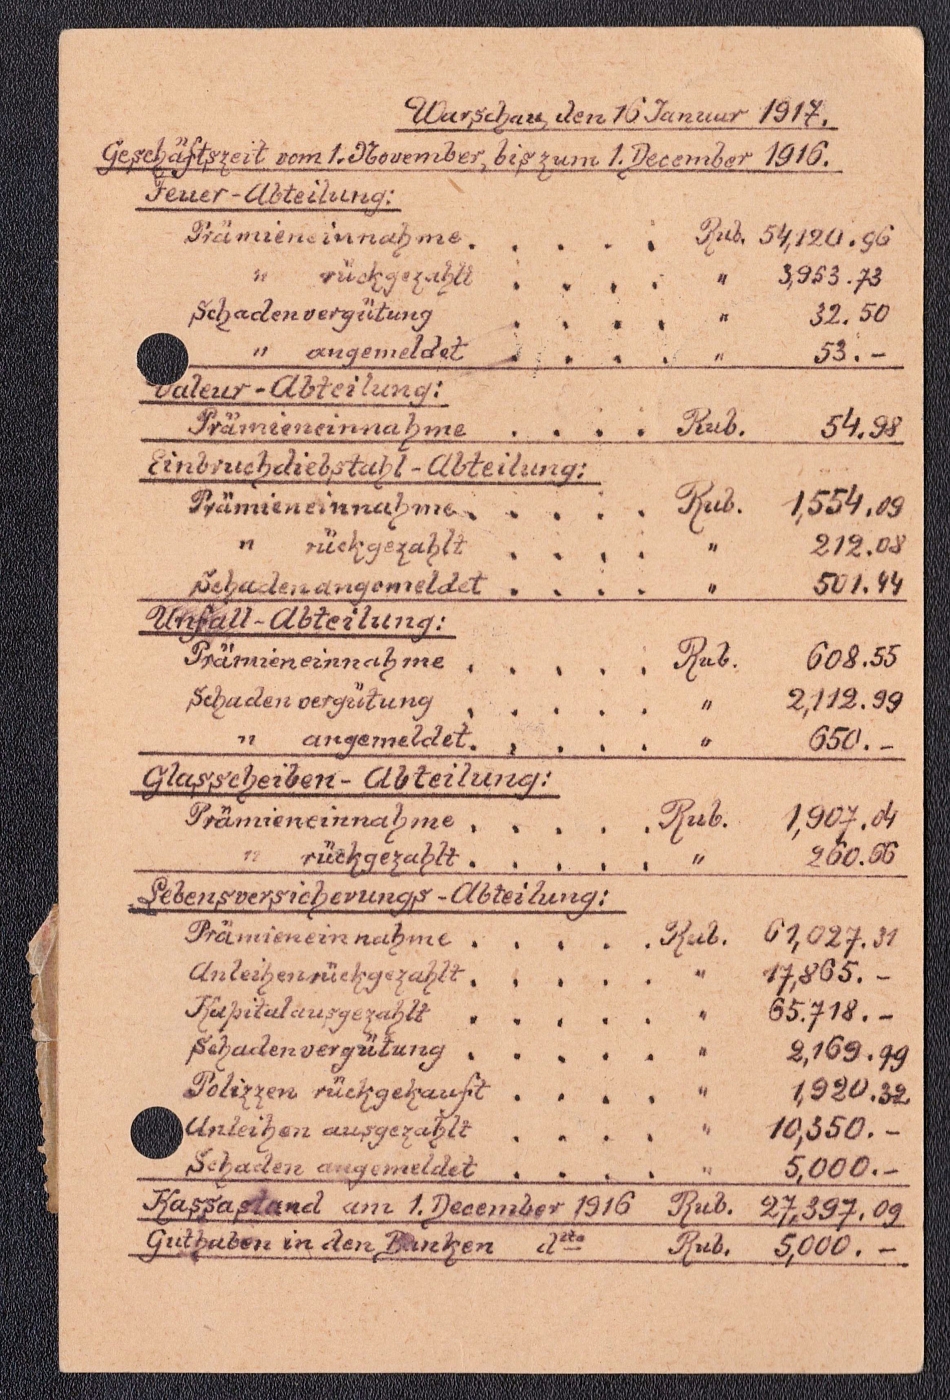 Warschau, den 16 Januar 1917.
Geschäftszeit vom 1. November, bis zum 1. December 1916.
Feuer-Abteilung:
Prämieneinnahme . . . . . Rub. 54,120.96
" rückgezahlt . . . . " 3,953.73
Schadenvergütung . . . . " 32.50
" angemeldet . . . . " 53.-
Valeur-Abteilung:
Prämieneinnahme . . . . Rub. 54.98
Einbruchdiebstahl-Abteilung:
Prämieneinnahme . . . . . Rub. 1,554.09
" rückgezahlt . . . . " 212.08
Schaden angemeldet . . . . " 501.44
Unfall-Abteilung:
Prämieneinnahme . . . . . Rub. 608.55
Schadenvergütung . . . . . " 2,112.99
" angemeldet . . . . . " 650.-
Glasscheiben-Abteilung:
Prämieneinnahme . . . . . Rub. 1,907.04
" rückgezahlt . . . . . " 260.66
Lebensversicherungs-Abteilung:
Prämieneinnahme . . . . . Rub. 61,027.31
Anleihen rückgezahlt . . . . . " 17,865.-
Kapital ausgezahlt . . . . " 65.718.-
Schadenvergütung . . . . . " 2,169.99
Polizzen rückgekauft . . . . " 1,920.32
Anleihen ausgezahlt . . . . " 10,350.-
Schaden angemeldet . . . . " 5,000.-
Kassastand am 1. December 1916 Rub. 27,397.09
Guthaben in den Banken dtto Rub. 5,000.-